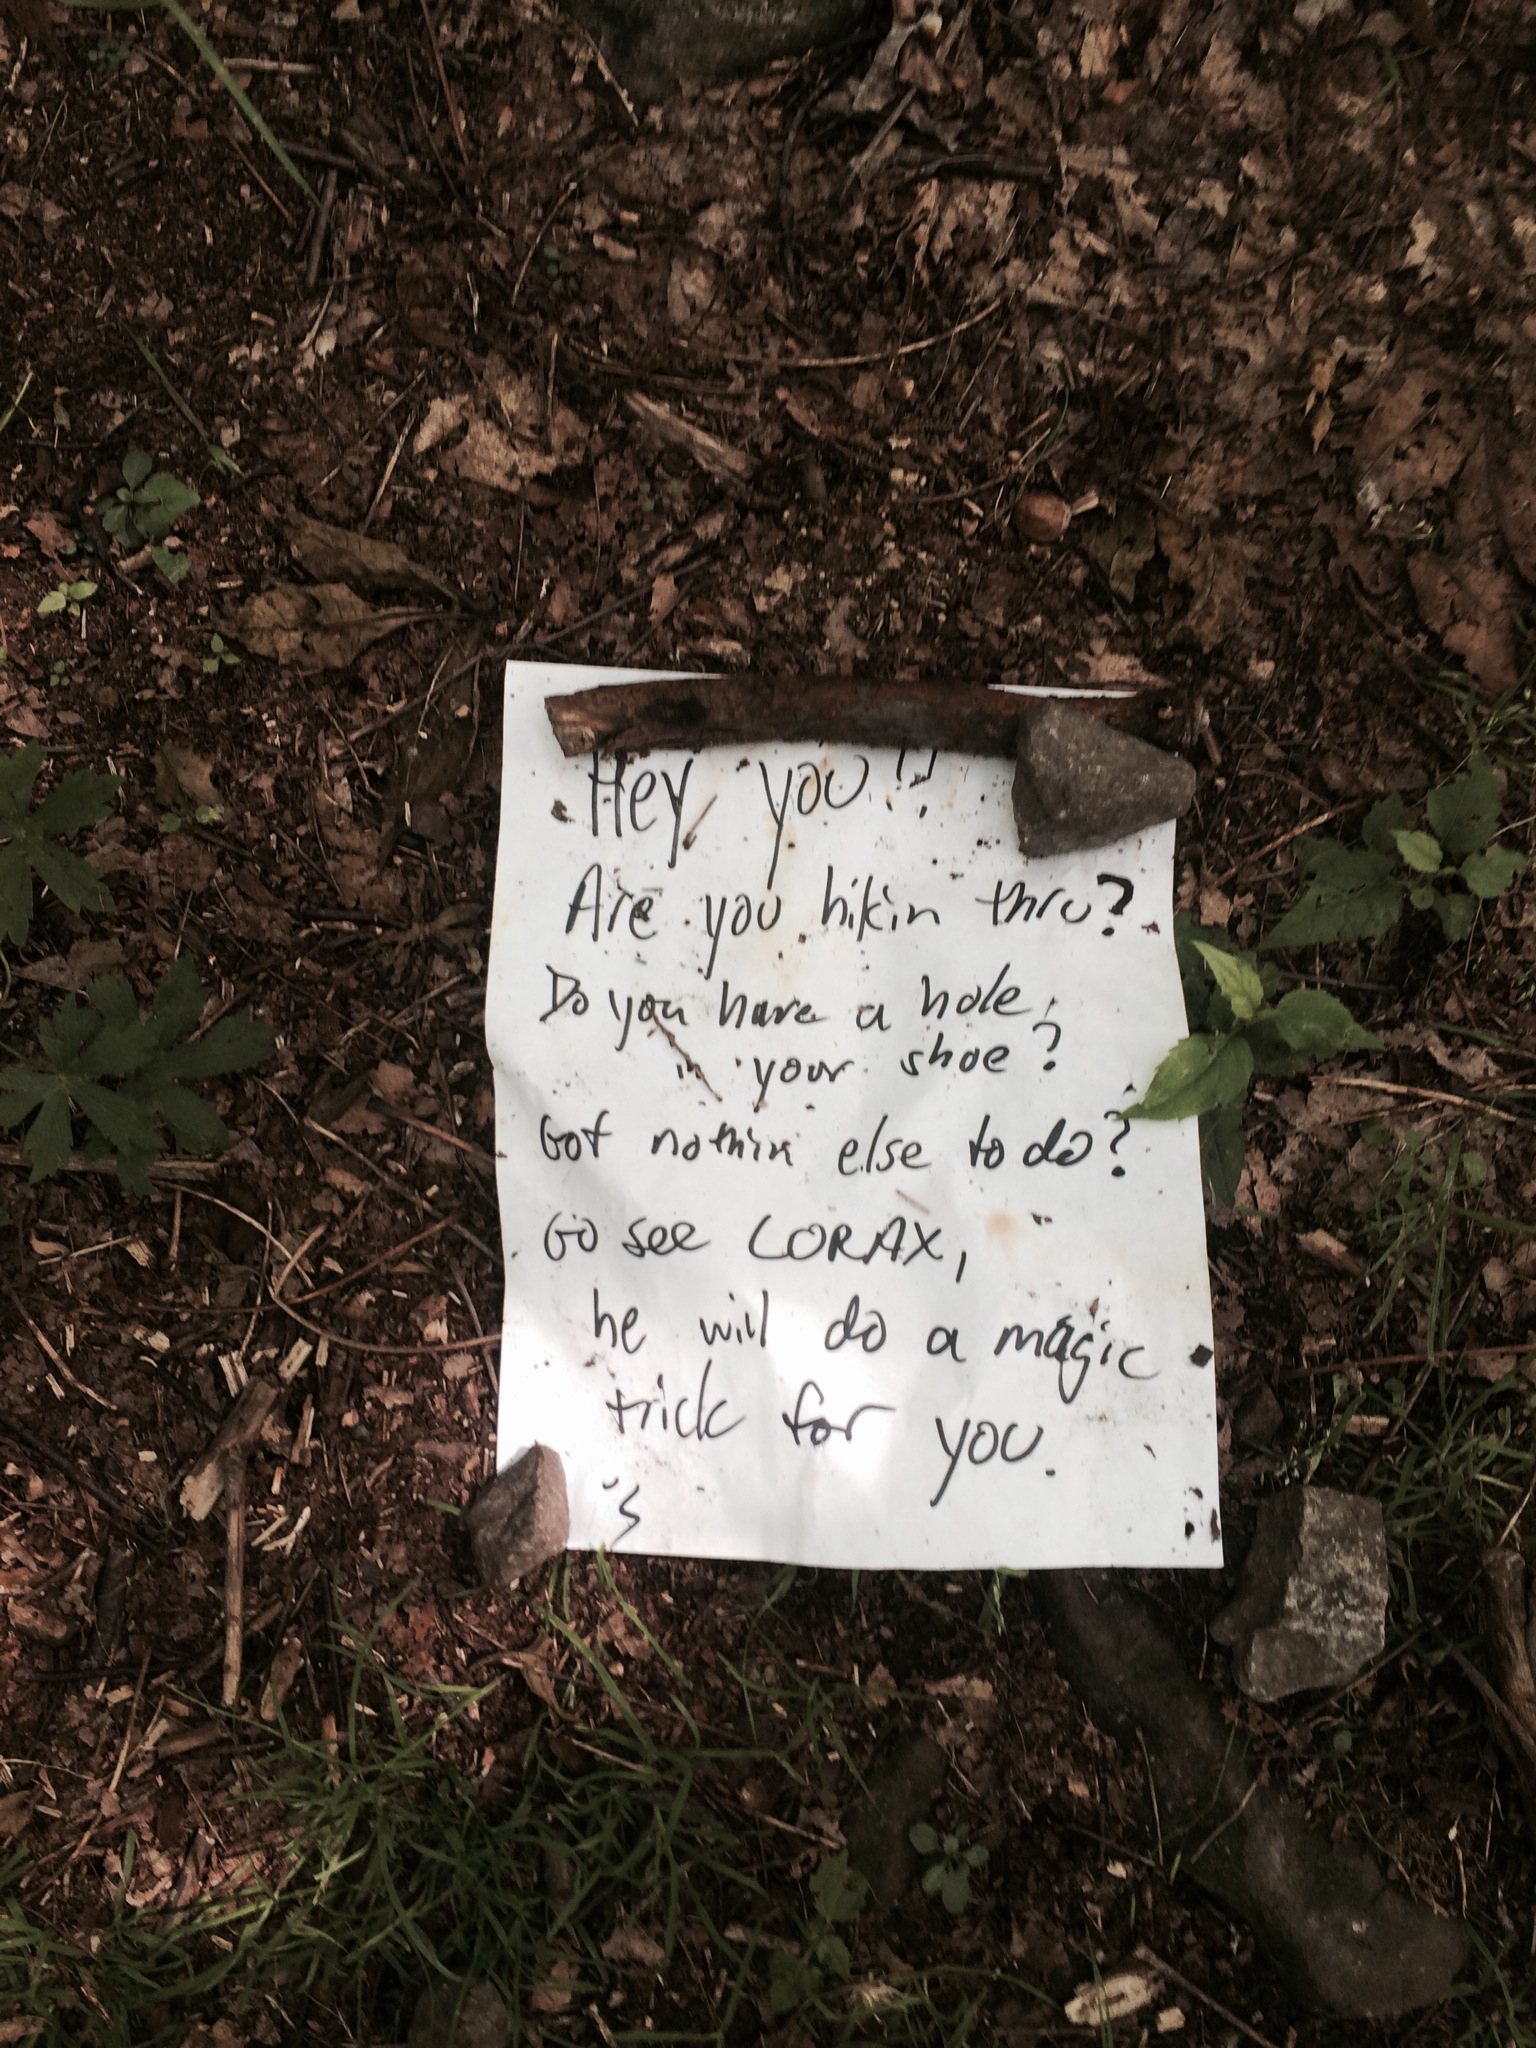 Hey you!!
Are you hikin thru?
Do you have a hole
in your shoe?
Got nothin else to do?
Go see LORAX,
he will do a magic
trick for you.